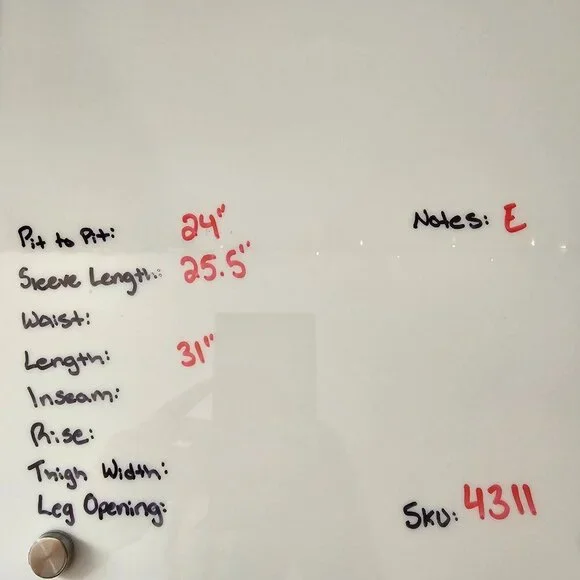 Pit to Pit: 24"
Notes: E
Sleeve Length: 25.5"
Waist:
Length: 31"
Inseam:
Rise:
Thigh Width:
Leg Opening:
Sku: 4311